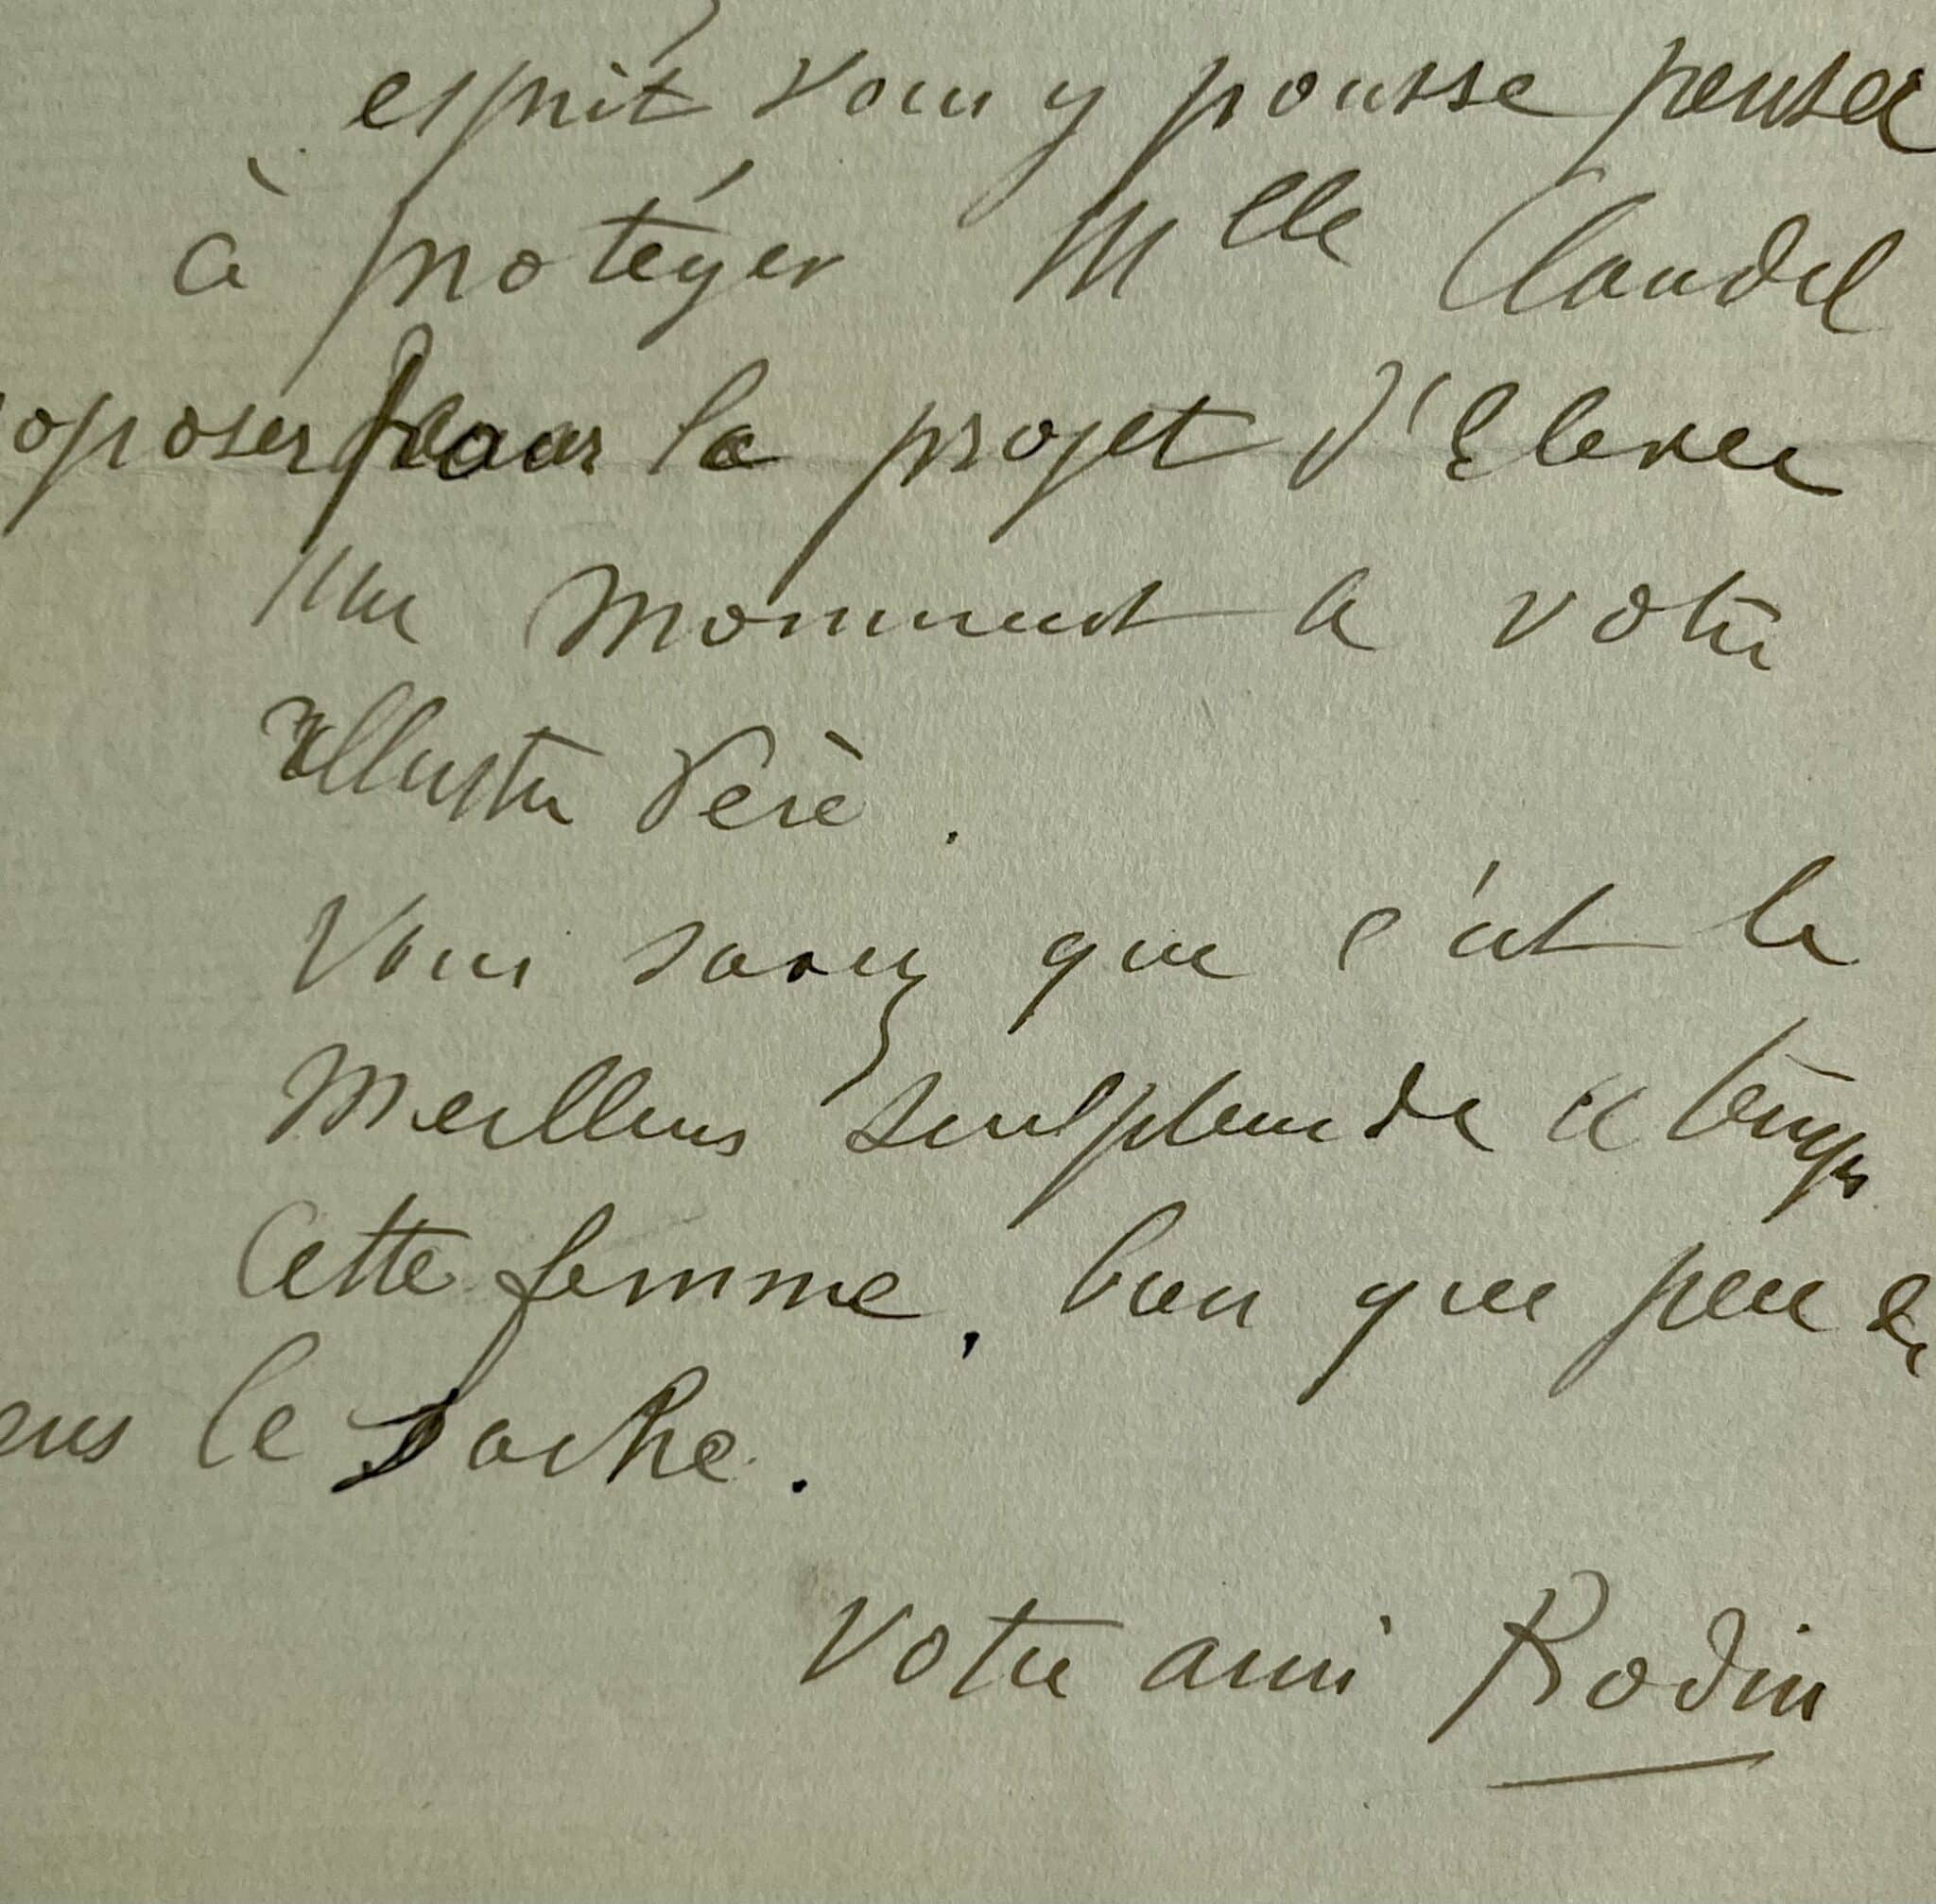 esprit vous y pousse penser
à protéger Mlle Claudel
oposer pour le projet d'Elever
un monument a votre
illustre Père.
Vous savez que c'est le
Meilleur sculpteur de ce temps
Cette femme, bien que peu de
ens le sache.
Votre ami Rodin